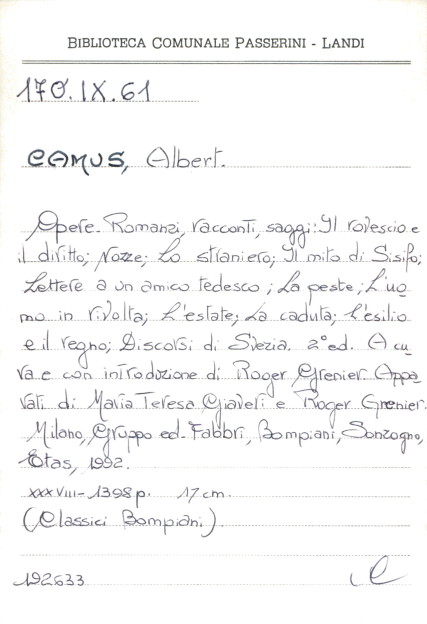 BIBLIOTECA COMUNALE PASSERINI - LANDI
170.IX.61
CAMUS, Albert.
Opere. Romanzi, racconti, saggi: Il rovescio e
il diritto; Nozze; Lo straniero; Il mito di Sisifo;
Lettere a un amico tedesco; La peste; L'uo
mo in rivolta; L'estate; La caduta; L'esilio
e il regno; Discorsi di Svezia. 2° ed. A cu
ra e con introduzione di Roger Grenier. Appa
rati di Maria Teresa Giaveri e Roger Grenier.
Milano, Gruppo ed. Fabbri, Bompiani, Sonzogno,
Etas, 1992.
XXXVIII-1398 p. 17 cm.
(Classici Bompiani).
192633